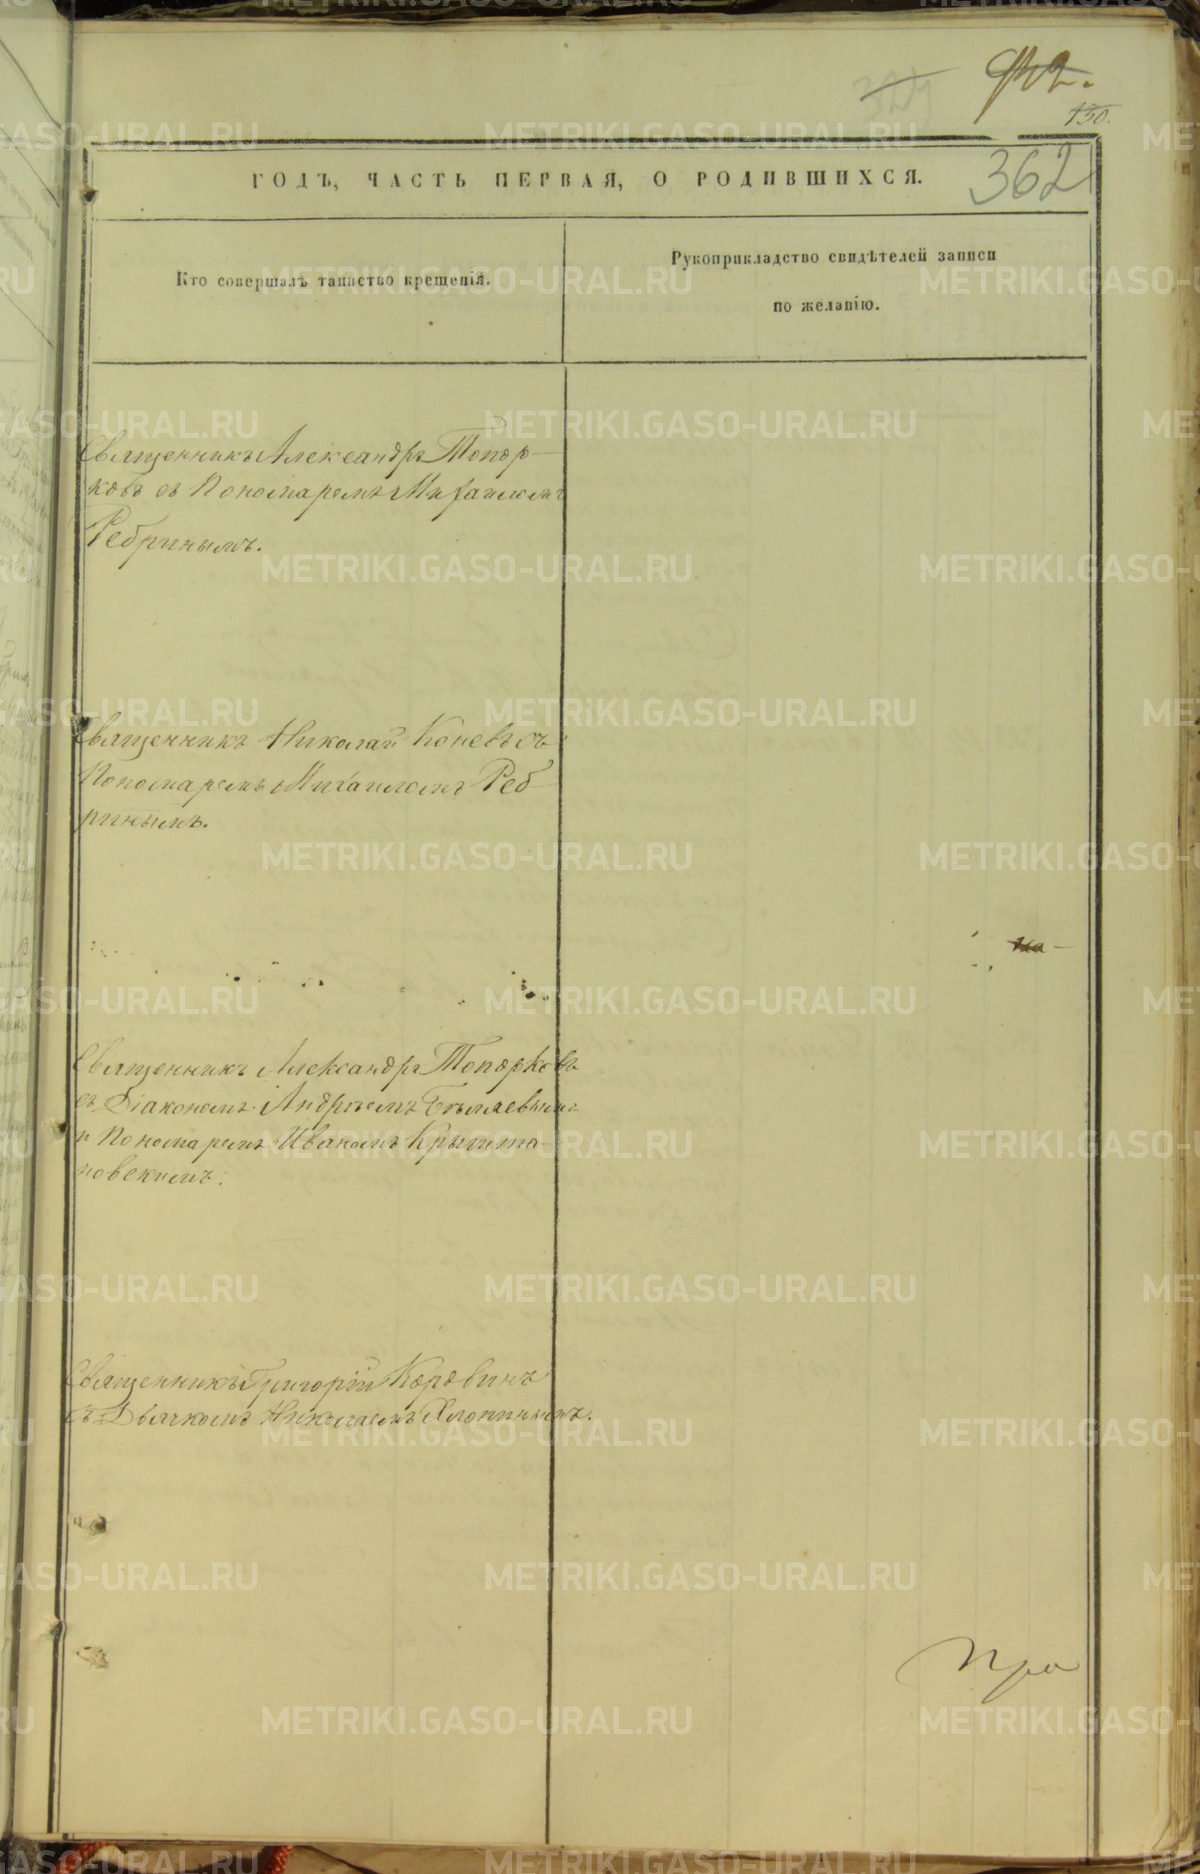 150.
362
ГОДЪ, ЧАСТЬ ПЕРВАЯ, О РОДИВШИХСЯ.
Кто совершалъ таинство крещенія.
Рукоприкладство свидѣтелей записи
по желанію.
Священникъ Александръ Топор-
ковъ съ Пономаремъ Михаиломъ
Ребринымъ.
Священникъ Николай Коневъ съ
Пономаремъ Михаиломъ Реб-
ринымъ.
Священникъ Александръ Топорковъ
съ Діакономъ Андреемъ Бѣляевымъ
и Пономаремъ Иваномъ Крыжта-
новскимъ.
Священникъ Григорій Коровинъ
съ Дьячкомъ Николаемъ Хлопинымъ.
METRIKI.GASO-URAL.RU